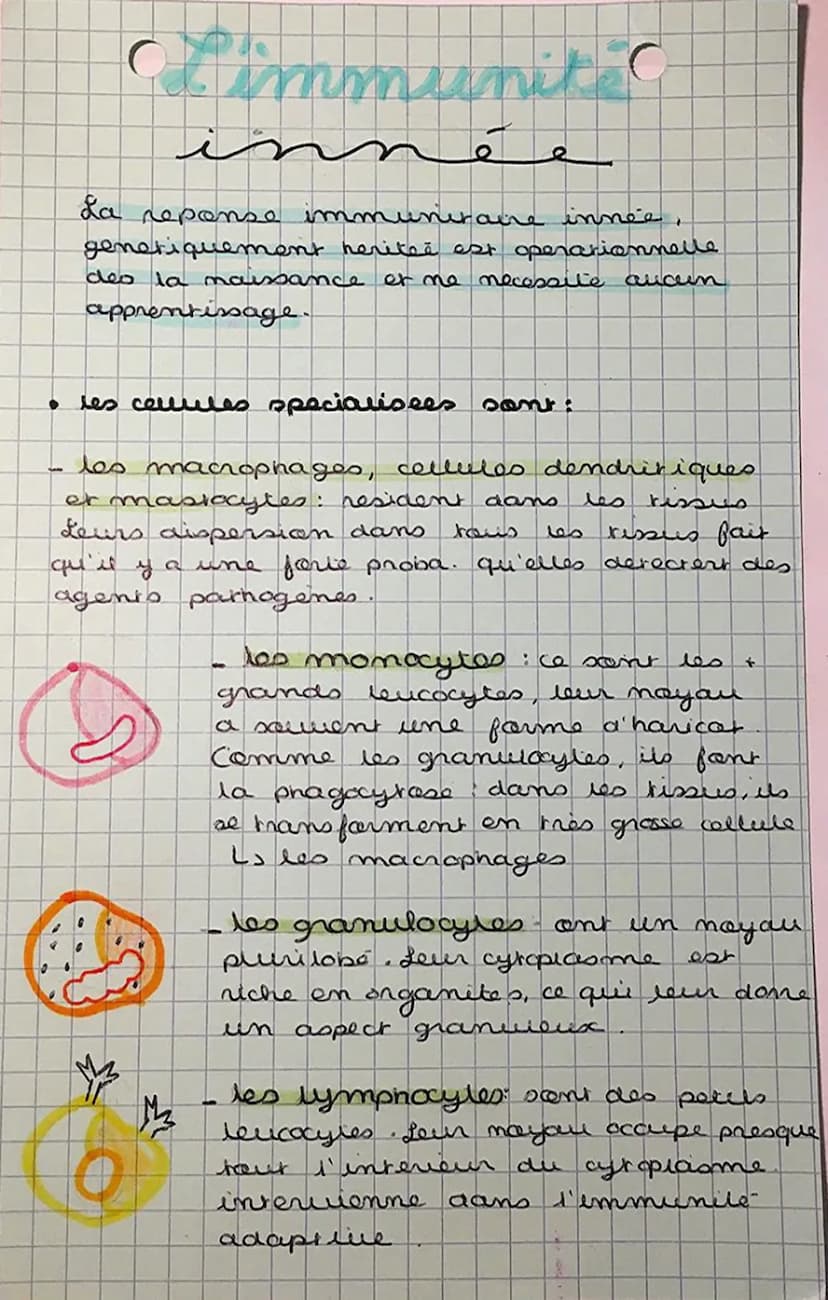 L'immunité
innée
La reponse immunitaire innée,
genetiquement heritée est operationnelle
des la naissance et ne necessite aucun
apprentissage.
• les cellules specialisees sont :
- les macrophages, cellules dendritiques
et mastocytes : resident dans les tissus
Leurs dispersion dans tous les tissus fait
qu'il y a une forte proba. qu'elles detectent des
agents pathogenes.
- les monocytes : ce sont les +
grands leucocytes, leur noyau
a souvent une forme d'haricot.
Comme les granulocytes, ils font
la phagocytose : dans les tissus, ils
se transforment en très grosse cellule
↳ les macrophages
- les granulocytes - ont un noyau
plurilobé. Leur cytoplasme est
riche en organites, ce qui leur donne
un aspect granuleux.
- les lymphocytes : sont des petits
leucocytes. Leur noyau occupe presque
tout l'interieur du cytoplasme
intervienne dans l'immunité
adaptive.